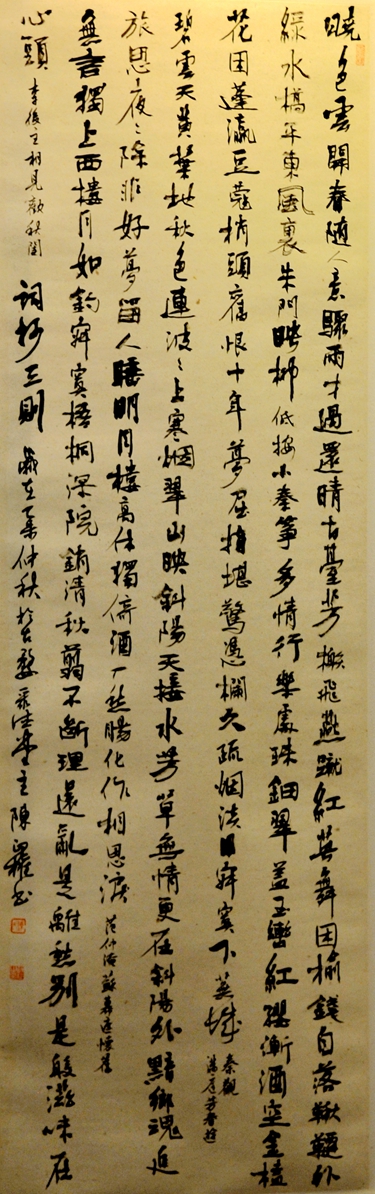 曉色雲開春隨人意驟雨才過還晴古臺芳榭飛燕蹴紅英舞困榆錢自落鞦韆外
綠水橋平東風裏朱門映柳低按小秦箏多情行樂處珠鈿翠蓋玉轡紅纓漸酒空金榼
花困蓬瀛豆蔻梢頭舊恨十年夢屈指堪驚憑欄久疏烟淡日寂寞下蕪城 秦觀
滿庭芳春遊
碧雲天黃葉地秋色連波〻上寒烟翠山映斜陽天接水芳草無情更在斜陽外黯鄉魂追
旅思夜〻除非好夢留人睡明月樓高休獨倚酒入愁腸化作相思淚 范仲淹蘇幕遮懷舊
無言獨上西樓月如鈎寂寞梧桐深院鎖清秋翦不斷理還亂是離愁別是般滋味在
心頭 李後主相見歡秋閨 詞抄三則 歲在仲秋於堂主陳書